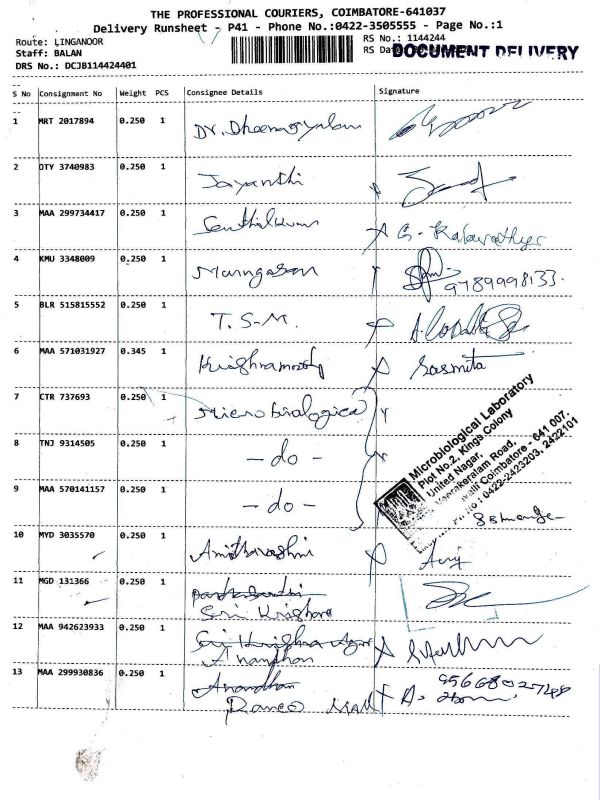 THE PROFESSIONAL COURIERS, COIMBATORE-641037
Delivery Runsheet - P41 - Phone No.:0422-3505555 - Page No.:1
Route: LINGANOOR
RS No.: 1144244
Staff: BALAN
RS Date
DOCUMENT DELIVERY
DRS No.: DCJB114424401
S No Consignment No Weight PCS Consignee Details Signature
1 MRT 2017894 0.250 1 Dr. Dheenagyalan
2 OTY 3740983 0.250 1 Jayanthi
3 MAA 299734417 0.250 1 Senthilkumar
4 KMU 3348009 0.250 1 Murugasan 9789998133.
5 BLR 515815552 0.250 1 T.S-M.
6 MAA 571031927 0.345 1 Krishnamoorthy Sasmita
7 CTR 737693 0.250 1 Microbiological
8 TNJ 9314505 0.250 1 - do -
9 MAA 570141157 0.250 1 - do -
Microbiological Laboratory
Plot No.2, Kings Colony
United Nagar,
Road,
Coimbatore - 641 007.
: 0422-2423203, 2422101
10 MYD 3035570 0.250 1
11 MGD 131366 0.250 1
Sri Krishna
12 MAA 942623933 0.250 1 Sri Krishna
Ananthan
13 MAA 299930836 0.250 1 Anandhan
Ranco Mall